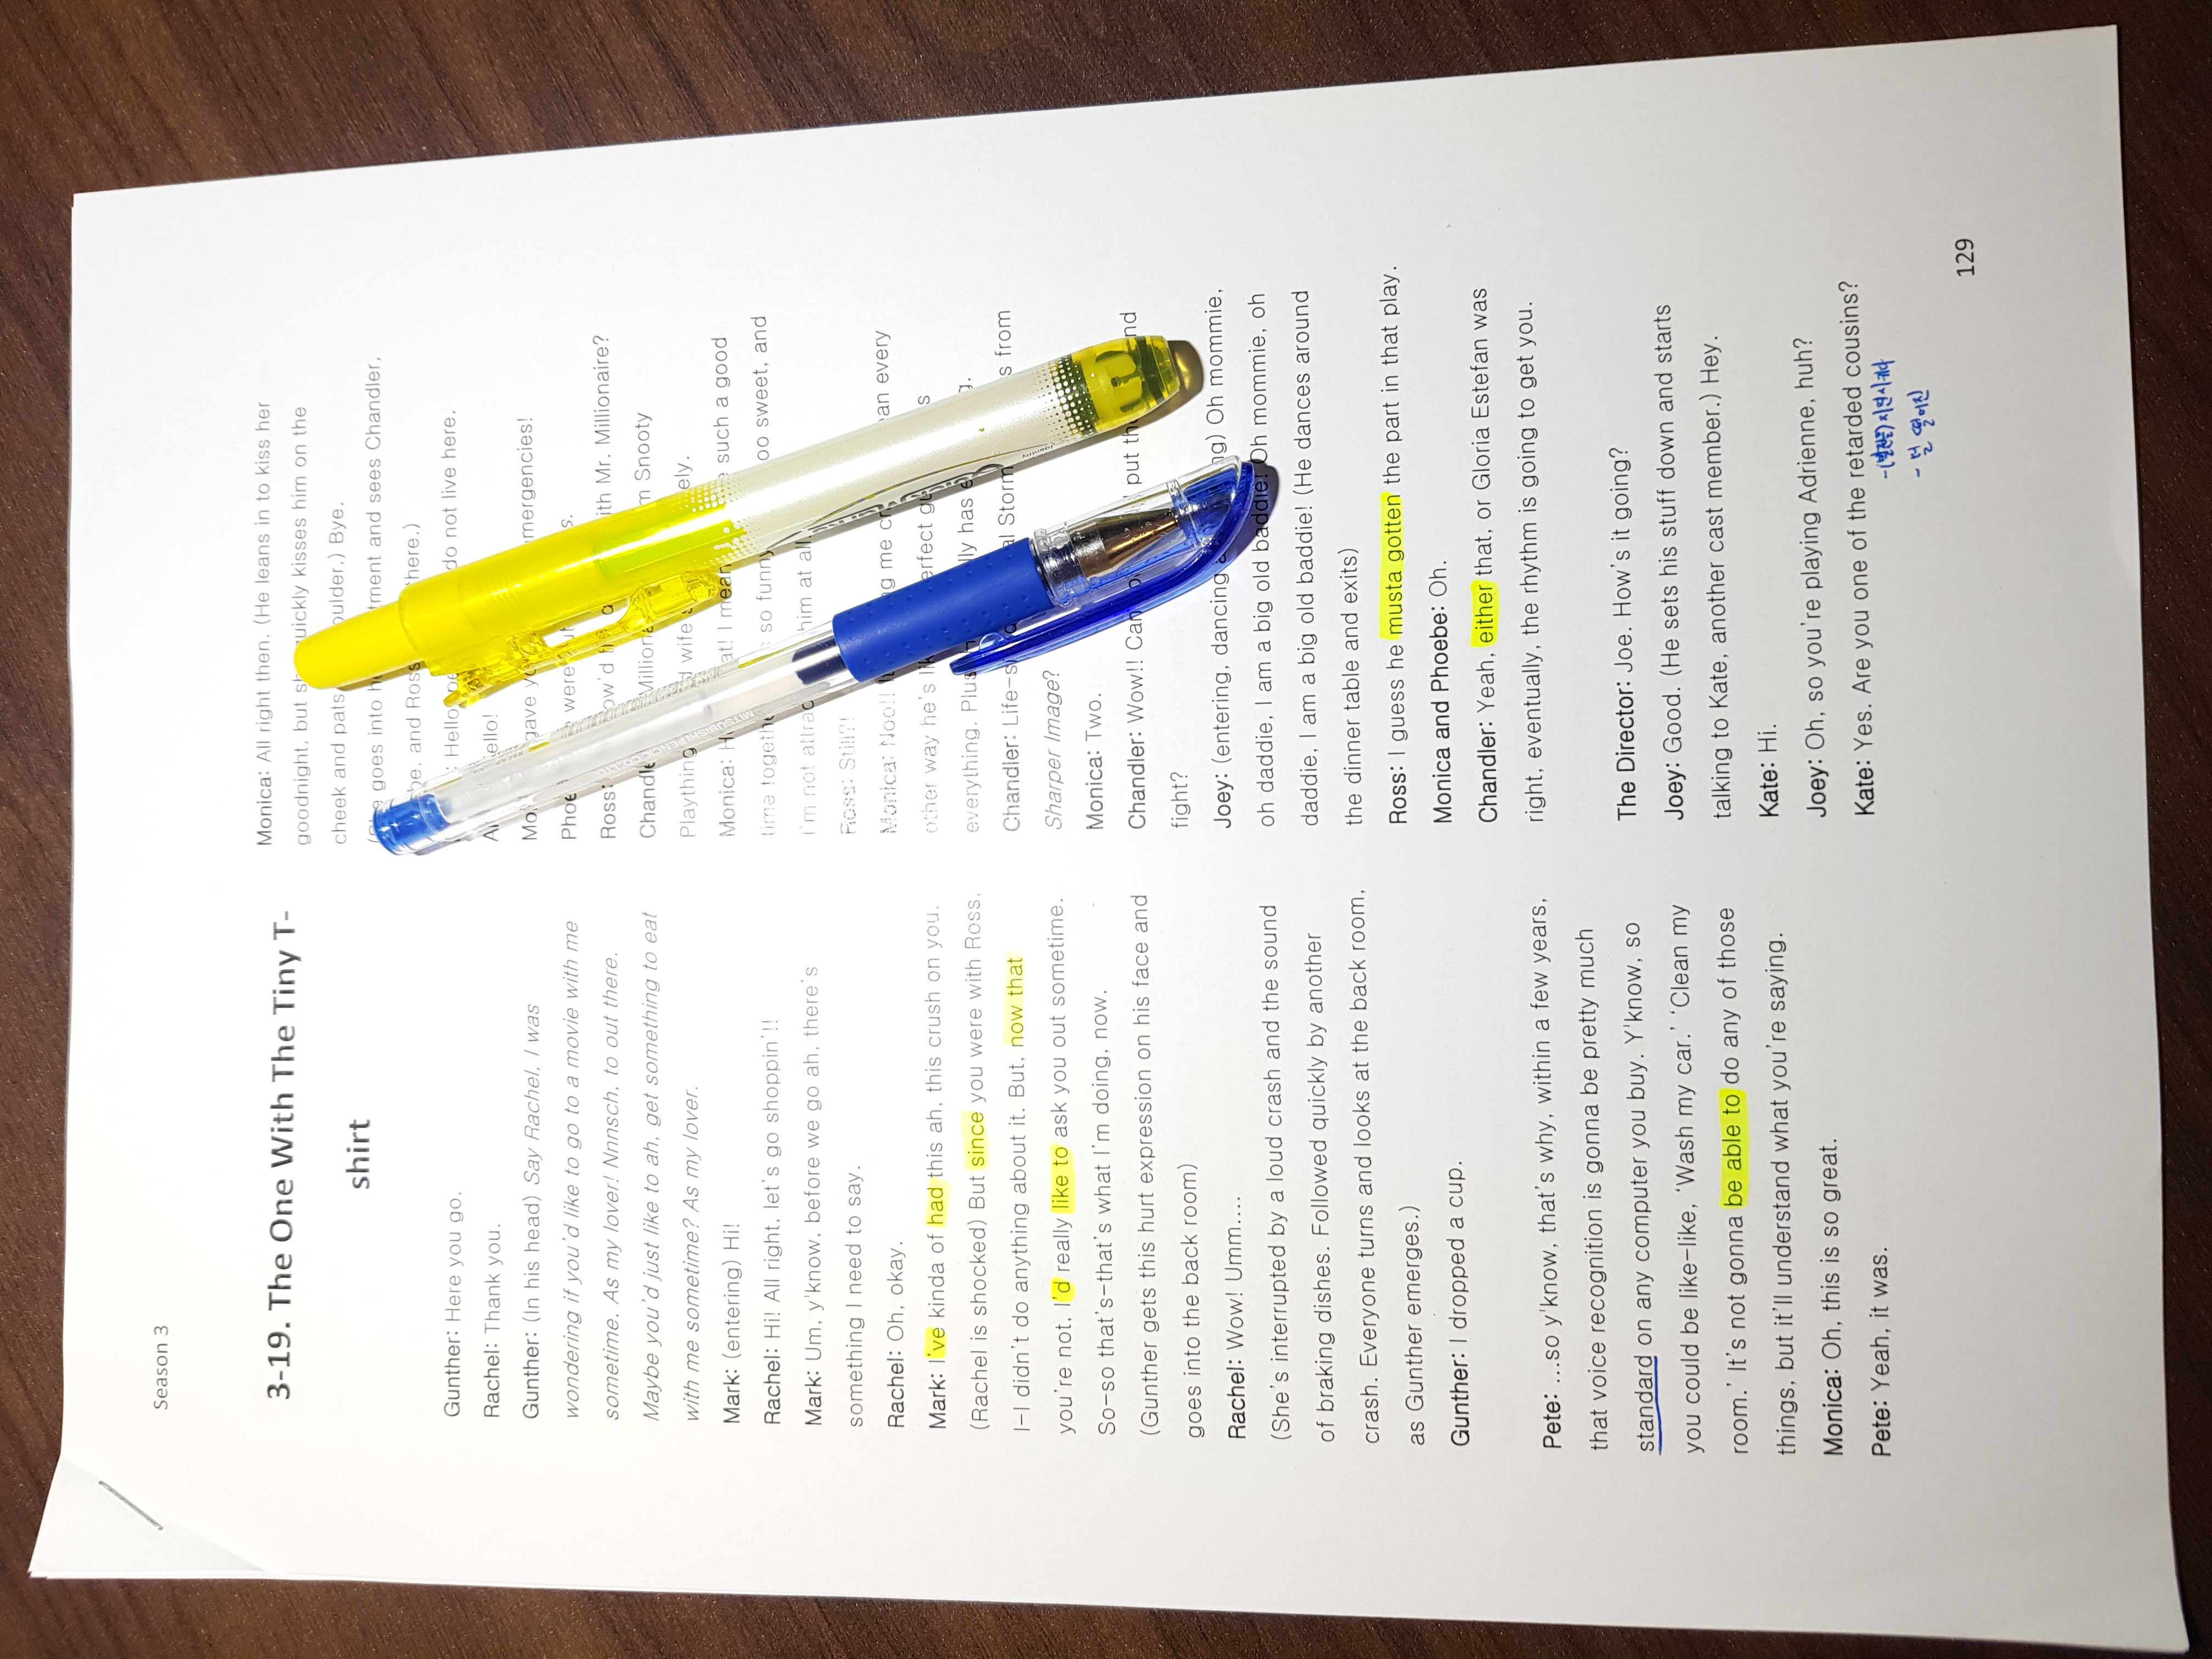 Season 3
3-19. The One With The Tiny T-
shirt
Gunther: Here you go.
Rachel: Thank you.
Gunther: (In his head) Say Rachel, I was
wondering if you'd like to go to a movie with me
sometime. As my lover! Nnnsch, to out there.
Maybe you'd just like to ah, get something to eat
with me sometime? As my lover.
Mark: (entering) Hi!
Rachel: Hi! All right, let's go shoppin'!!
Mark: Um, y'know, before we go ah, there's
something I need to say.
Rachel: Oh, okay.
Mark: I've kinda of had this ah, this crush on you.
(Rachel is shocked) But since you were with Ross,
I-I didn't do anything about it. But, now that
you're not, I'd really like to ask you out sometime.
So-so that's-that's what I'm doing, now.
(Gunther gets this hurt expression on his face and
goes into the back room)
Rachel: Wow! Umm....
(She's interrupted by a loud crash and the sound
of braking dishes. Followed quickly by another
crash. Everyone turns and looks at the back room,
as Gunther emerges.)
Gunther: I dropped a cup.
Pete: ...so y'know, that's why, within a few years,
that voice recognition is gonna be pretty much
standard on any computer you buy. Y'know, so
you could be like-like, 'Wash my car.' 'Clean my
room.' It's not gonna be able to do any of those
things, but it'll understand what you're saying.
Monica: Oh, this is so great.
Pete: Yeah, it was.
Monica: All right then. (He leans in to kiss her
goodnight, but quickly kisses him on the
cheek and pats Bye.
goes into tment and sees Chandler,
and here.)
Hello do not live here.
gave mergencies!
were
ith Mr. Millionaire?
Snooty
Plaything wife
Monica: such a good
time so funny so sweet, and
I'm not him at all
Ross: Still?!
Monica: Noo!! me every
other way he's
everything. has
Chandler: from
Sharper Image?
Monica: Two.
Chandler: Wow!! put
fight?
Joey: (entering, dancing Oh mommie,
oh daddie, I am a big old baddie! Oh mommie, oh
daddie, I am a big old baddie! (He dances around
the dinner table and exits)
Ross: I guess he musta gotten the part in that play.
Monica and Phoebe: Oh.
Chandler: Yeah, either that, or Gloria Estefan was
right, eventually, the rhythm is going to get you.
The Director: Joe. How's it going?
Joey: Good. (He sets his stuff down and starts
talking to Kate, another cast member.) Hey.
Kate: Hi.
Joey: Oh, so you're playing Adrienne, huh?
Kate: Yes. Are you one of the retarded cousins?
지연시키다
- 덜 떨어진
129